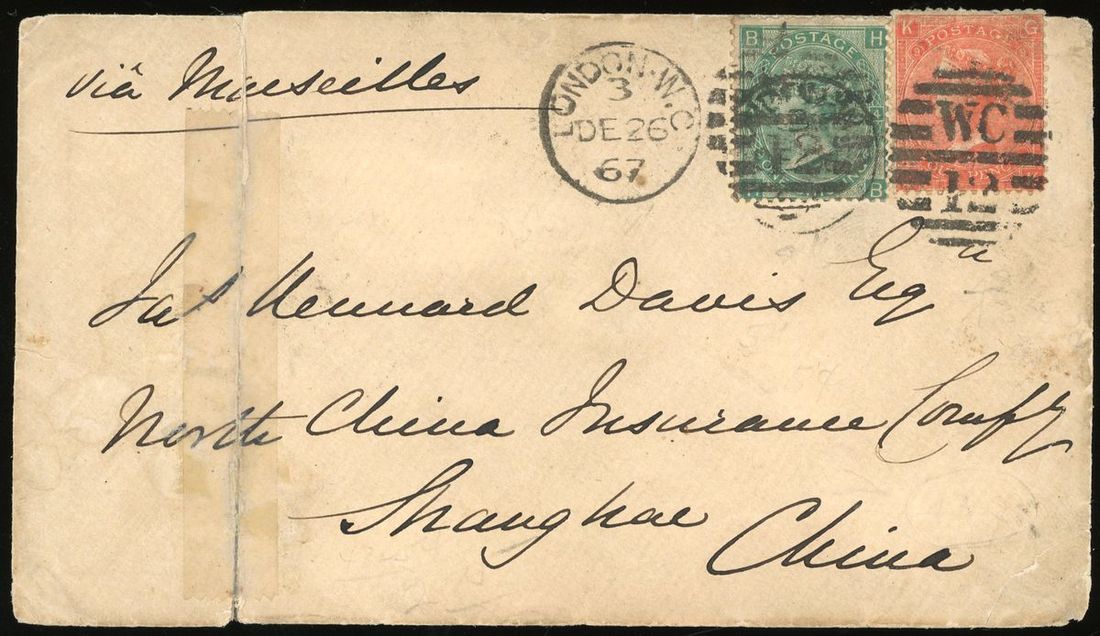 viâ Marseilles
LONDON·W.C
3
DE 26
67
B H
POSTAGE
H B
K G
POSTAGE
WC
12
Jas Kennard Davis Esq
North China Insurance Compy
Shanghae
China